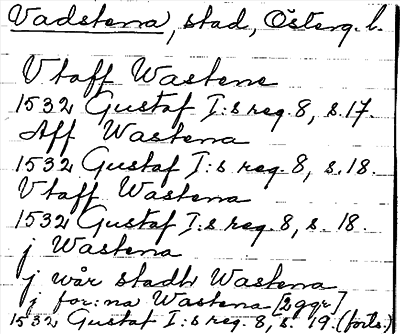 Vadstena, stad, Österg. l.
Vtaff Wastene
1532 Gustaf I:s reg. 8, s. 17.
Aff Wastena
1532 Gustaf I:s reg. 8, s. 18.
Vtaff Wastena
1532 Gustaf I:s reg. 8, s. 18.
j Wastena
j wår stadh Wastena
j for:na Wastena [2 ggr]
1532 Gustaf I:s reg. 8, s. 19. (forts.)